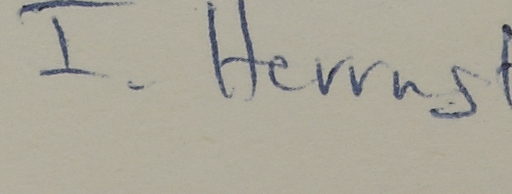 I. Herrnst